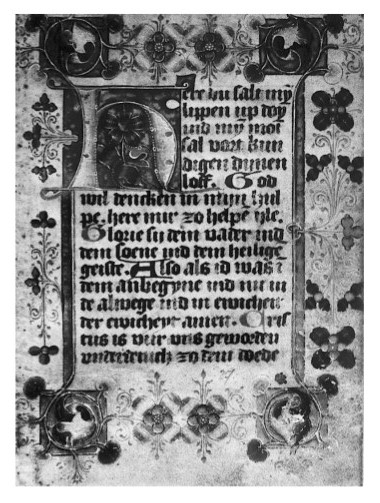 Here du salt my
lippen up doy
ind my mot
sal vort kun
digen dynen
loff. God
wil dencken in myn hul
pe. here mir zo helpe yle.
Glorie sy dem vader ind
dem soene ind dem heilige
geiste. Also als id was i
dem anbegyne ind nu in
de alwege ind in ewicheit
der ewicheyt amen. Cris
tus is vur uns geworden
underdenich zo dem dode